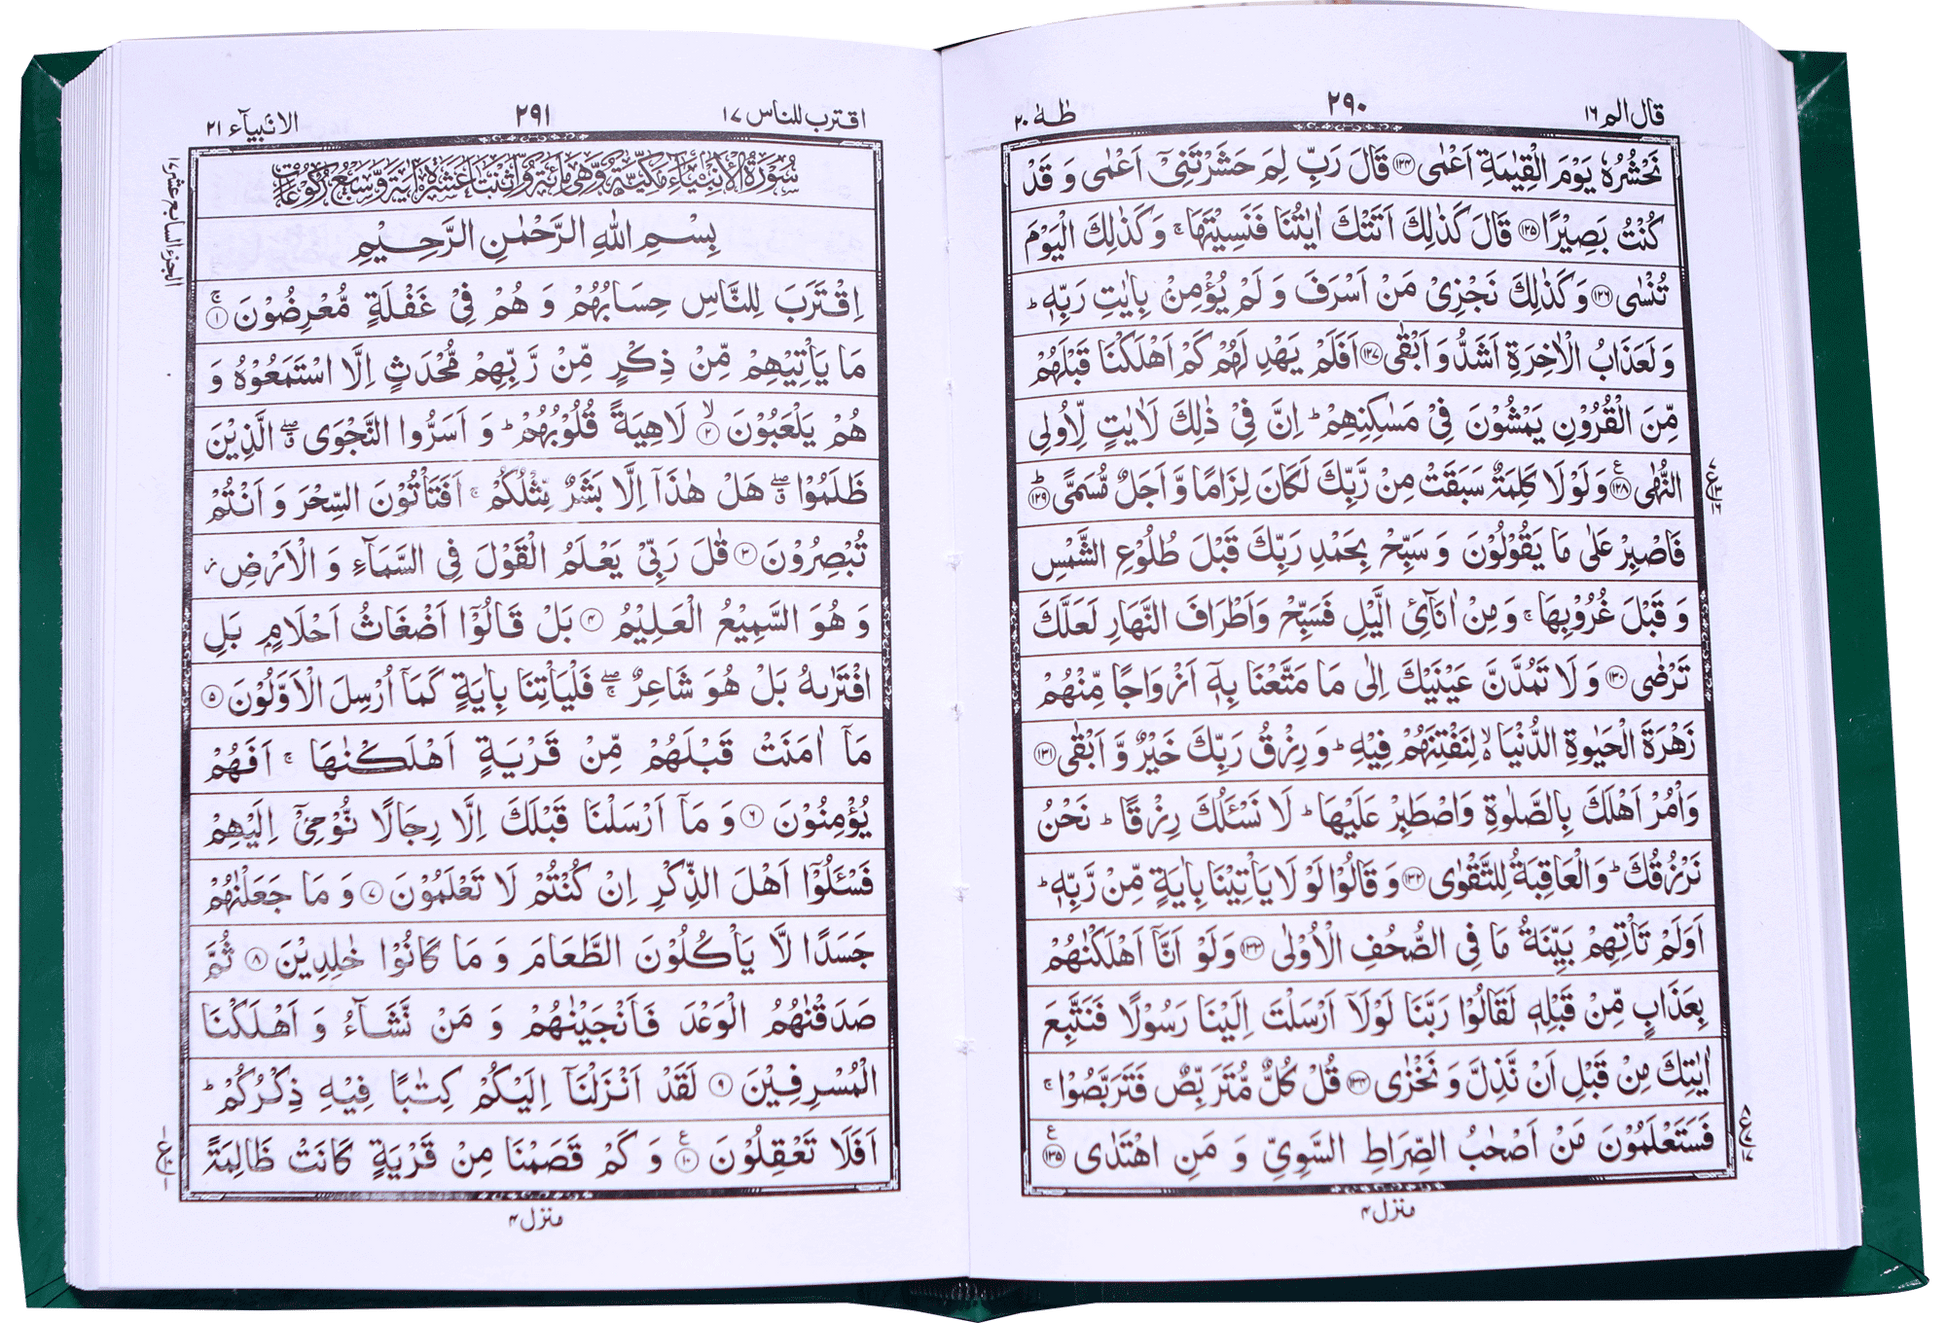 قال الم ١٦
٢٩٠
طٰهٰ ٢٠
نَحْشُرُهٗ يَوْمَ الْقِيٰمَةِ اَعْمٰى ١٢٤ قَالَ رَبِّ لِمَ حَشَرْتَنِىْٓ اَعْمٰى وَ قَدْ
كُنْتُ بَصِيْرًا ١٢٥ قَالَ كَذٰلِكَ اَتَتْكَ اٰيٰتُنَا فَنَسِيْتَهَا ۚ وَ كَذٰلِكَ الْيَوْمَ
تُنْسٰى ١٢٦ وَ كَذٰلِكَ نَجْزِىْ مَنْ اَسْرَفَ وَ لَمْ يُؤْمِنْۢ بِاٰيٰتِ رَبِّهٖ ؕ
وَ لَعَذَابُ الْاٰخِرَةِ اَشَدُّ وَ اَبْقٰى ١٢٧ اَفَلَمْ يَهْدِ لَهُمْ كَمْ اَهْلَكْنَا قَبْلَهُمْ
مِّنَ الْقُرُوْنِ يَمْشُوْنَ فِىْ مَسٰكِنِهِمْ ؕ اِنَّ فِىْ ذٰلِكَ لَاٰيٰتٍ لِّاُولِى
النُّهٰى ١٢٨ وَ لَوْ لَا كَلِمَةٌ سَبَقَتْ مِنْ رَّبِّكَ لَكَانَ لِزَامًا وَّ اَجَلٌ مُّسَمًّى ؕ ١٢٩
فَاصْبِرْ عَلٰى مَا يَقُوْلُوْنَ وَ سَبِّحْ بِحَمْدِ رَبِّكَ قَبْلَ طُلُوْعِ الشَّمْسِ
وَ قَبْلَ غُرُوْبِهَا ۚ وَ مِنْ اٰنَآئِ الَّيْلِ فَسَبِّحْ وَ اَطْرَافَ النَّهَارِ لَعَلَّكَ
تَرْضٰى ١٣٠ وَ لَا تَمُدَّنَّ عَيْنَيْكَ اِلٰى مَا مَتَّعْنَا بِهٖٓ اَزْوَاجًا مِّنْهُمْ
زَهْرَةَ الْحَيٰوةِ الدُّنْيَا ۙ لِنَفْتِنَهُمْ فِيْهِ ؕ وَ رِزْقُ رَبِّكَ خَيْرٌ وَّ اَبْقٰى ١٣١
وَ اْمُرْ اَهْلَكَ بِالصَّلٰوةِ وَ اصْطَبِرْ عَلَيْهَا ؕ لَا نَسْـَٔلُكَ رِزْقًا ؕ نَحْنُ
نَرْزُقُكَ ؕ وَ الْعَاقِبَةُ لِلتَّقْوٰى ١٣٢ وَ قَالُوْا لَوْ لَا يَاْتِيْنَا بِاٰيَةٍ مِّنْ رَّبِّهٖ ؕ
اَوَ لَمْ تَاْتِهِمْ بَيِّنَةُ مَا فِى الصُّحُفِ الْاُوْلٰى ١٣٣ وَ لَوْ اَنَّآ اَهْلَكْنٰهُمْ
بِعَذَابٍ مِّنْ قَبْلِهٖ لَقَالُوْا رَبَّنَا لَوْ لَآ اَرْسَلْتَ اِلَيْنَا رَسُوْلًا فَنَتَّبِعَ
اٰيٰتِكَ مِنْ قَبْلِ اَنْ نَّذِلَّ وَ نَخْزٰى ١٣٤ قُلْ كُلٌّ مُّتَرَبِّصٌ فَتَرَبَّصُوْا ۚ
فَسَتَعْلَمُوْنَ مَنْ اَصْحٰبُ الصِّرَاطِ السَّوِىِّ وَ مَنِ اهْتَدٰى ١٣٥
منزل ٤
اقترب للناس ١٧
٢٩١
الانبيآء ٢١
الجزء السابع عشر
سُوْرَةُ الْاَنْۢبِيَآءِ مَكِّيَّةٌ وَّ هِىَ مِائَةٌ وَّ اثْنَتَا عَشْرَةَ اٰيَةً وَّ سَبْعُ رُكُوْعَاتٍ
بِسْمِ اللهِ الرَّحْمٰنِ الرَّحِيْمِ
اِقْتَرَبَ لِلنَّاسِ حِسَابُهُمْ وَ هُمْ فِىْ غَفْلَةٍ مُّعْرِضُوْنَ ۚ ١
مَا يَاْتِيْهِمْ مِّنْ ذِكْرٍ مِّنْ رَّبِّهِمْ مُّحْدَثٍ اِلَّا اسْتَمَعُوْهُ وَ
هُمْ يَلْعَبُوْنَ ۙ ٢ لَاهِيَةً قُلُوْبُهُمْ ؕ وَ اَسَرُّوا النَّجْوَى ۖ ق الَّذِيْنَ
ظَلَمُوْا ۖ ق هَلْ هٰذَآ اِلَّا بَشَرٌ مِّثْلُكُمْ ۚ اَفَتَاْتُوْنَ السِّحْرَ وَ اَنْتُمْ
تُبْصِرُوْنَ ٣ قٰلَ رَبِّىْ يَعْلَمُ الْقَوْلَ فِى السَّمَآءِ وَ الْاَرْضِ ز
وَ هُوَ السَّمِيْعُ الْعَلِيْمُ ٤ بَلْ قَالُوْٓا اَضْغَاثُ اَحْلَامٍۭ بَلِ
افْتَرٰىهُ بَلْ هُوَ شَاعِرٌ ۖۚ فَلْيَاْتِنَا بِاٰيَةٍ كَمَآ اُرْسِلَ الْاَوَّلُوْنَ ٥
مَآ اٰمَنَتْ قَبْلَهُمْ مِّنْ قَرْيَةٍ اَهْلَكْنٰهَا ۚ اَفَهُمْ
يُؤْمِنُوْنَ ٦ وَ مَآ اَرْسَلْنَا قَبْلَكَ اِلَّا رِجَالًا نُّوْحِىْٓ اِلَيْهِمْ
فَسْـَٔلُوْٓا اَهْلَ الذِّكْرِ اِنْ كُنْتُمْ لَا تَعْلَمُوْنَ ٧ وَ مَا جَعَلْنٰهُمْ
جَسَدًا لَّا يَاْكُلُوْنَ الطَّعَامَ وَ مَا كَانُوْا خٰلِدِيْنَ ٨ ثُمَّ
صَدَقْنٰهُمُ الْوَعْدَ فَاَنْجَيْنٰهُمْ وَ مَنْ نَّشَآءُ وَ اَهْلَكْنَا
الْمُسْرِفِيْنَ ٩ لَقَدْ اَنْزَلْنَآ اِلَيْكُمْ كِتٰبًا فِيْهِ ذِكْرُكُمْ ؕ
اَفَلَا تَعْقِلُوْنَ ١٠ وَ كَمْ قَصَمْنَا مِنْ قَرْيَةٍ كَانَتْ ظَالِمَةً
منزل ٤